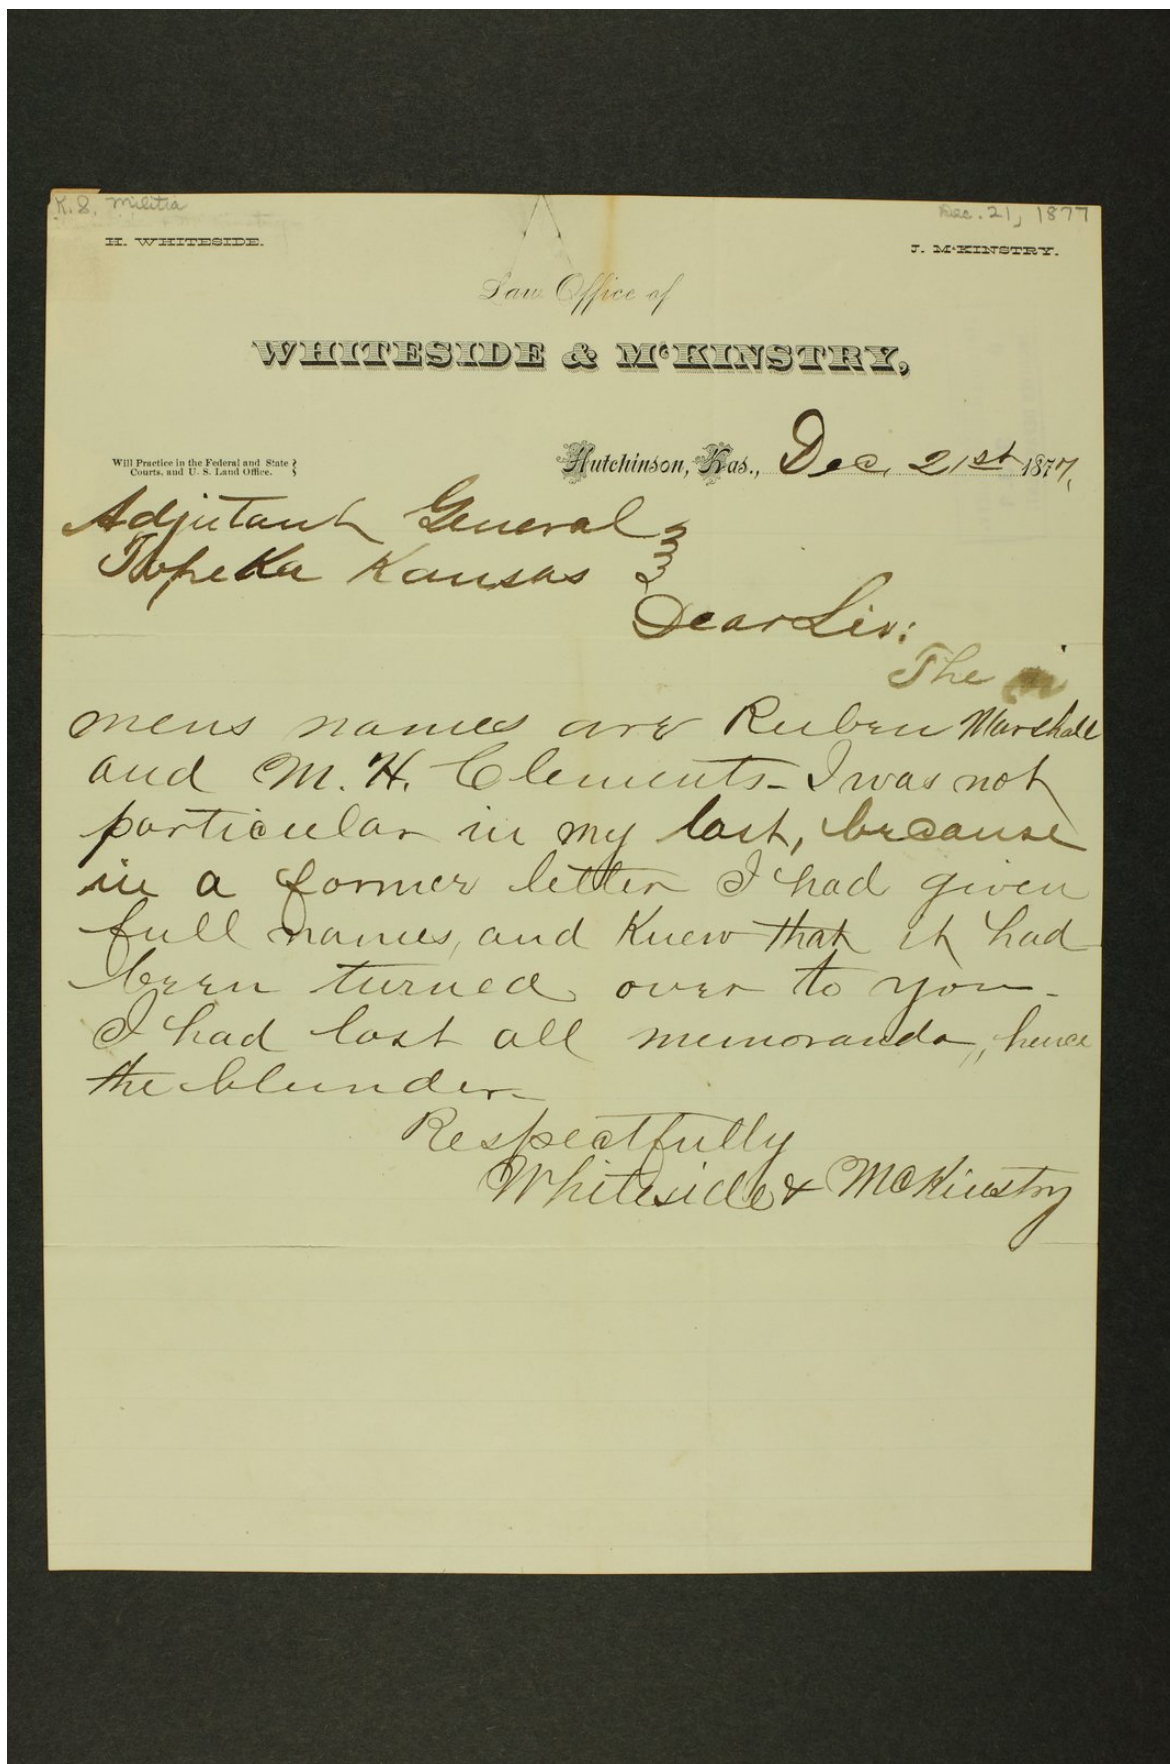 K.S. Militia
Dec. 21, 1877
H. WHITESIDE.
J. McKINSTRY.
Law Office of
WHITESIDE & McKINSTRY,
Will Practice in the Federal and State
Courts, and U. S. Land Office.
Hutchinson, Kas., Dec. 21st 1877,
Adjutant General
Topeka Kansas
Dear Sir:
The
mens names are Ruben Marshall
and M. H. Clements - I was not
particular in my last, because
in a former letter I had given
full names, and Knew that it had
been turned over to you -
I had lost all memoranda, hence
the blunder -
Respectfully
Whiteside & McKinstry